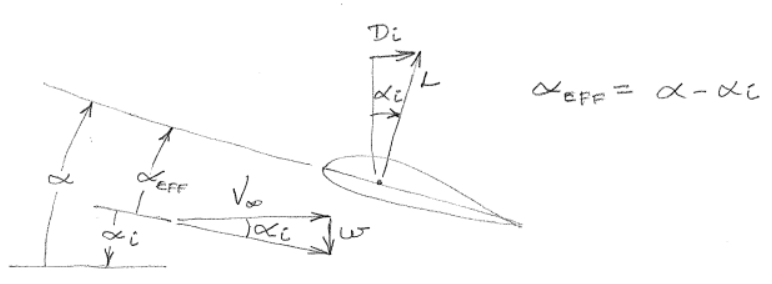 Di
αi
L
αEFF = α - αi
α
αEFF
V∞
αi
αi
w